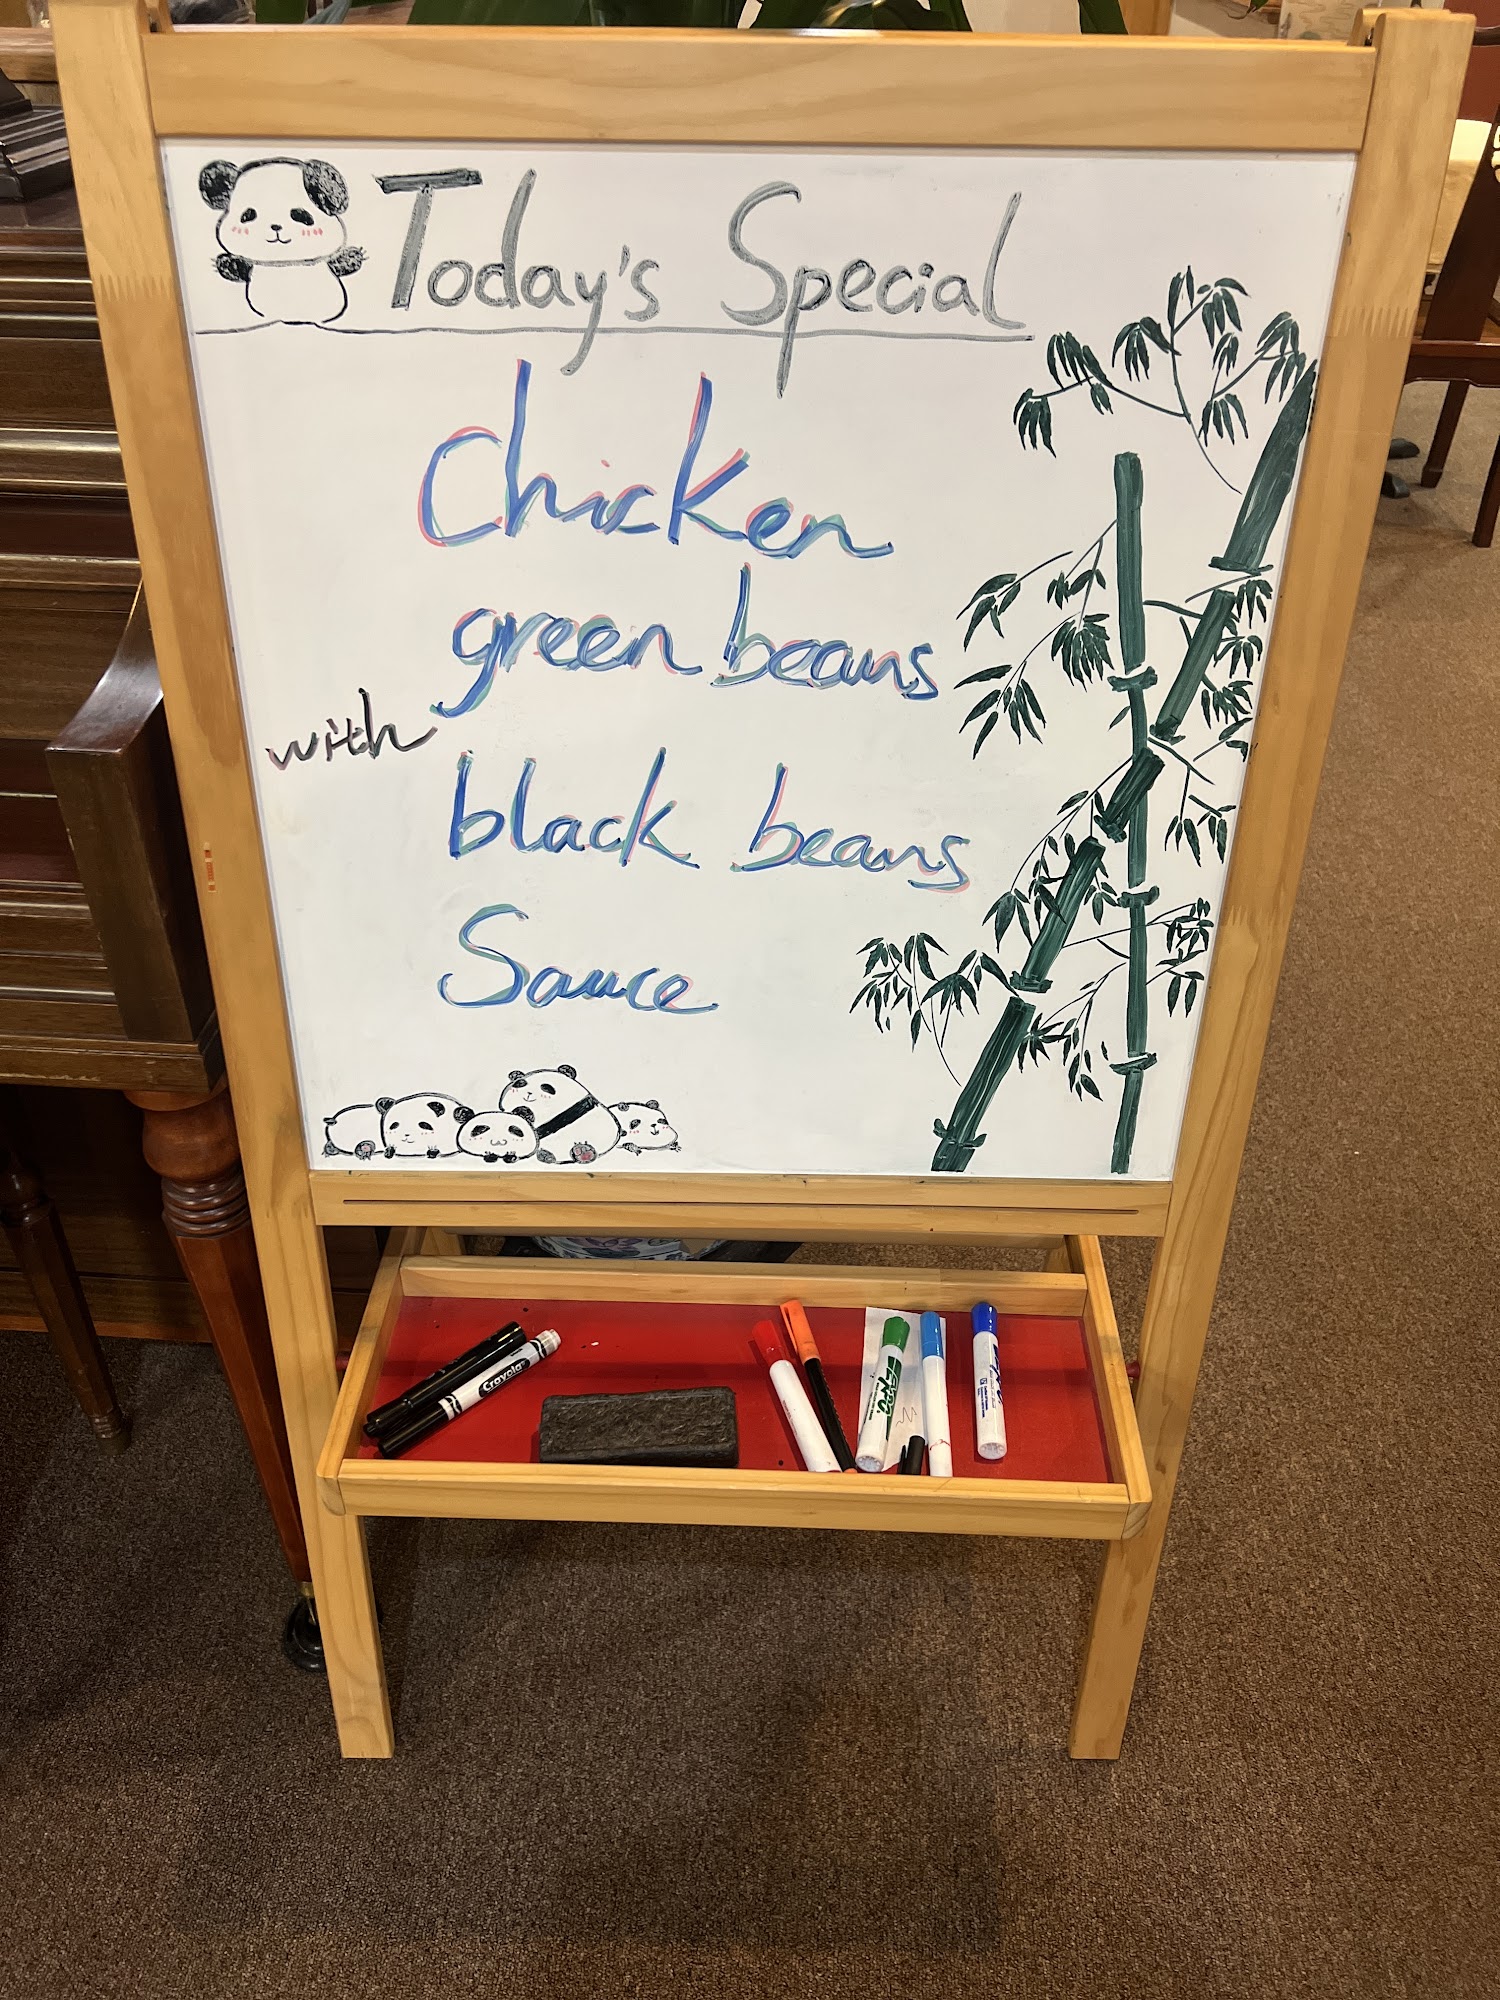 Today's Special
Chicken
green beans
with
black beans
Sauce
Crayola
EXPO